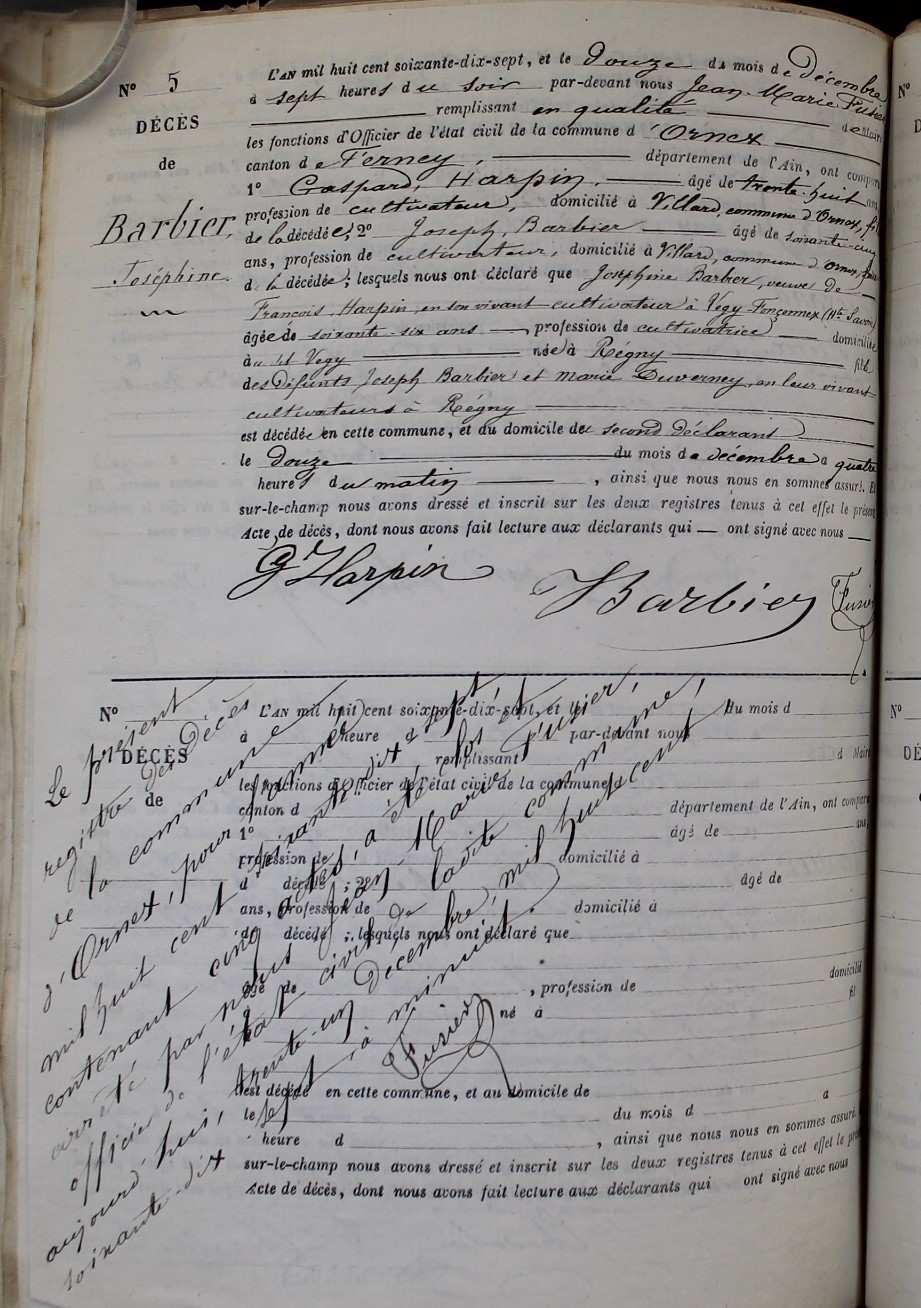 N° 5
DÉCÈS
de
Barbier,
Joséphine
L'AN mil huit cent soixante-dix-sept, et le Douze du mois de Décembre
à sept heures du soir par-devant nous Jean-Marie Fusier
remplissant en qualité de Maire
les fonctions d'Officier de l'état civil de la commune d'Ornex
canton de Ferney, département de l'Ain, ont comparu
1° Gaspard, Harpin, âgé de trente-huit ans
profession de cultivateur, domicilié à Villard, commune d'Ornex, fils
de la décédée, 2° Joseph, Barbier âgé de soixante-cinq
ans, profession de cultivateur, domicilié à Villard, commune d'Ornex,
d la décédée; lesquels nous ont déclaré que Joséphine Barbier, veuve de
François, Harpin, en son vivant cultivateur à Vegy-Fonçennex (Hte Savoie)
âgée de soixante-six ans, profession de cultivatrice domiciliée
à Vegy née à Régny fille
des défunts Joseph Barbier et Marie Duverney, en leur vivant
cultivateurs à Régny
est décédée en cette commune, et au domicile du second déclarant
le douze du mois de décembre a quatre
heures du matin, ainsi que nous nous en sommes assuré. Et
sur-le-champ nous avons dressé et inscrit sur les deux registres tenus à cet effet le présent
Acte de décès, dont nous avons fait lecture aux déclarants qui — ont signé avec nous —
G. Harpin
J Barbier
Fusier
N°
DÉCÈS
de
L'AN mil huit cent soixante-dix-sept, et le du mois d
à heure d par-devant nous
remplissant d Maire
les fonctions d'Officier de l'état civil de la commune
canton d département de l'Ain, ont comparu
1° âgé de ans,
profession de domicilié à
d décédé ; 2° âgé de
ans, profession de domicilié à
d décédé ; lesquels nous ont déclaré que
âgé de , profession de domicilié
à né à fil
est décédé en cette commune, et au domicile de
le du mois d a
heure d , ainsi que nous nous en sommes assuré.
sur-le-champ nous avons dressé et inscrit sur les deux registres tenus à cet effet le présent
Acte de décès, dont nous avons fait lecture aux déclarants qui ont signé avec nous
Le présent
registre des Décès
de la commune
d'Ornex, pour l'année
mil huit cent soixante-dix-sept,
contenant cinq actes, a été clos et
arrêté par nous, Jean-Marie Fusier,
officier de l'état civil de ladite commune,
aujourd'hui, trente-un Décembre, mil huit cent
soixante-dix-sept à minuit.
Fusier
N°
N°